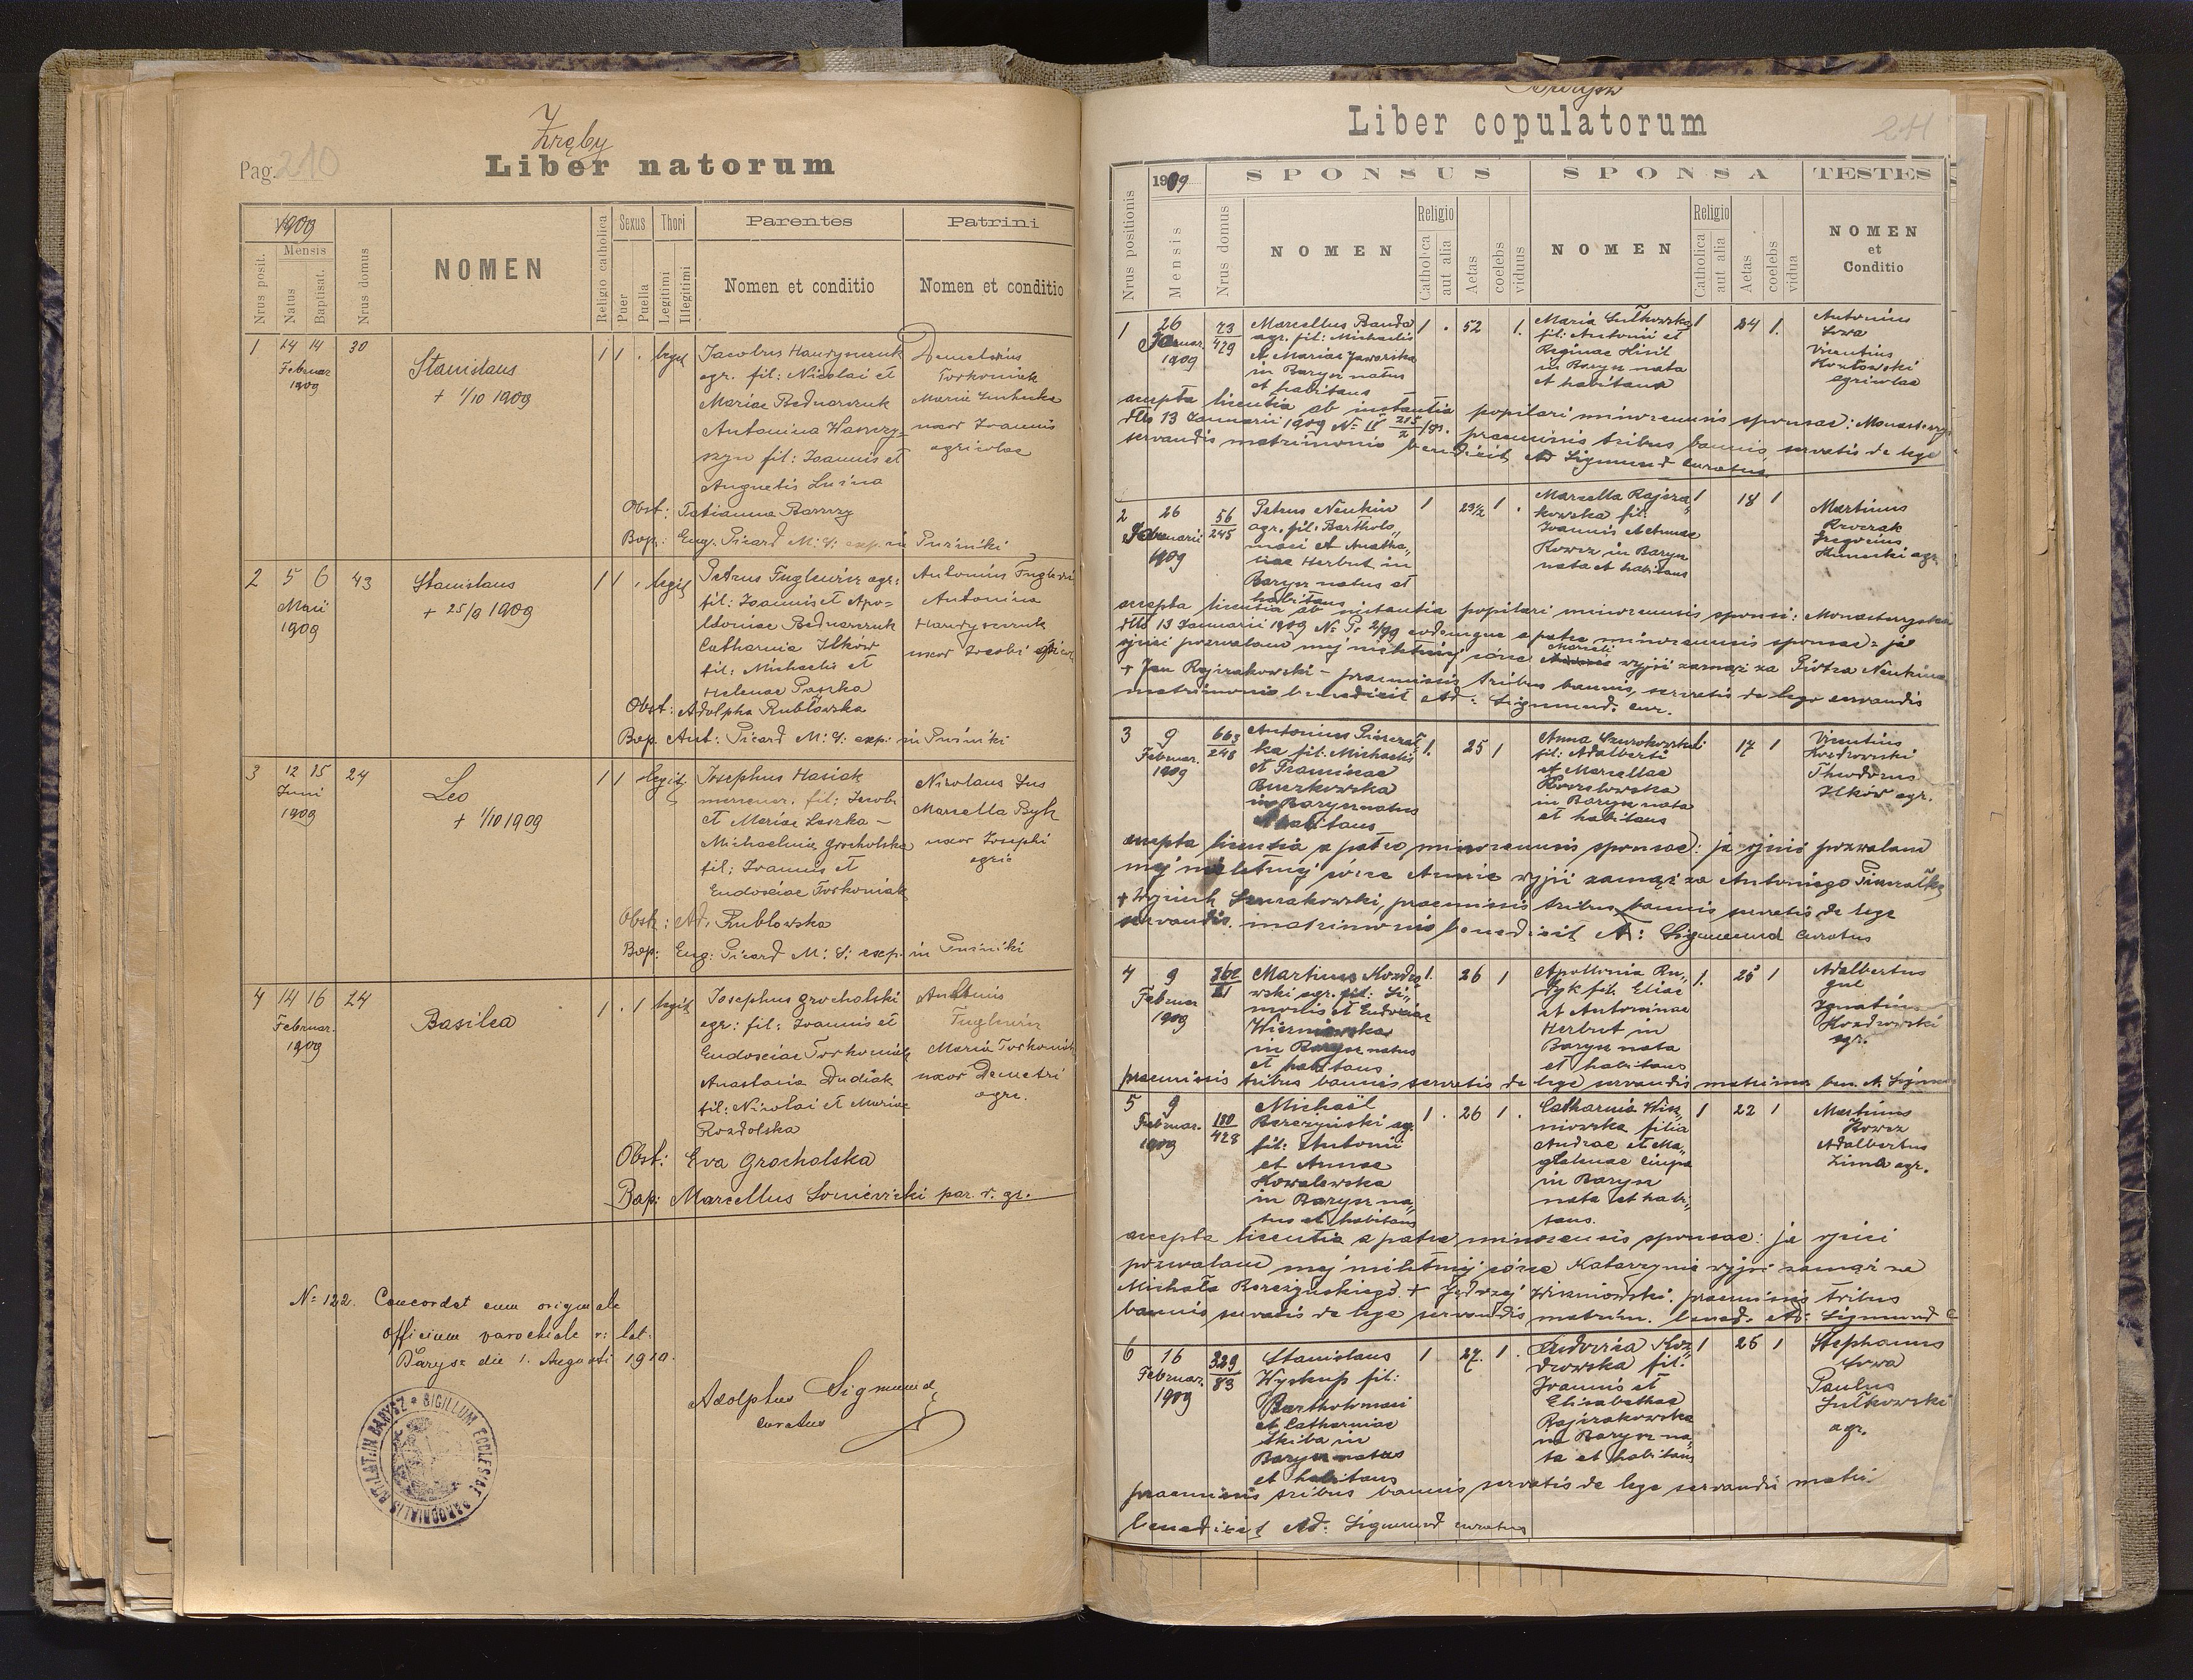 Zręby
Pag. 210
Liber natorum
1909
Mensis
Nrus posit.
Natus
Baptisat.
Nrus domus
NOMEN
Religio catholica
Sexus
Puer
Puella
Thori
Legitimi
Illegitimi
Parentes
Nomen et conditio
Patrini
Nomen et conditio
1 14 14 30
Februar
1909
Stanislaus
+ 1/10 1909
1 1 . legit
Jacobus Handyszczuk
agr. fil: Nicolai et
Mariae Bednarczuk
Antonina
fil: Joannis et
Agnetis Lusina
Demetrius
Torkoniak
Maria
uxor Joannis
agricolae
Obst: Tatianna
Bap: Eug. Picard M: S: exp. in Puźniki
2 5 6 43
Maii
1909
Stanislaus
+ 25/9 1909
1 1 . legit
Petrus Fuglewicz agr:
fil: Joannis et Apo=
loniae Bednarczuk
Catharina Ilków
fil: Michaelis et
Helenae Paszka
Antonius
Antonina
Handyszczuk
uxor Jacobi
Obst: Adolpha Rublowska
Bap. Ant: Picard M: S: exp: in Puźniki
3 12 15 24
Juni
1909
Leo
+ 1/10 1909
1 1 legit
Josephus Hasiak
fil: Jacobi
et Mariae Laszka –
Michaelina Grocholska
fil: Joannis et
Eudosciae Torkoniak
Nicolaus Jus
Marcella Byk
uxor Josephi
agric
Obst: Ad. Rublowska
Bap: Eug: Picard M: S: exp. in Puźniki
4 14 16 24
Februar.
1909
Basilea
1 . 1 legit
Josephus Grocholski
agr: fil: Joannis et
Eudosciae Torkoniak
Anastasia Dudiak
fil: Nicolai et Mariae
Rozdolska
Antonius
Fuglewicz
Maria Torkoniak
uxor Demetri
agr.
Obst: Eva Grocholska
Bap: Marcellus Soniewicki par. r. gr.
N: 122. Concordat cum originale
officium parochiale r: lat:
Barysz die 1. Augusti 1910.
Adolphus Sigmund
curatus
SIGILLUM ECCLESIAE PAROCHIALIS RIT. LAT. IN BARYSZ
Barysz
Liber copulatorum
211
Nrus positionis
1909
Mensis
Nrus domus
SPONSUS
NOMEN
Religio
Catholica
aut alia
Aetas
coelebs
viduus
SPONSA
NOMEN
Religio
Catholica
aut alia
Aetas
coelebs
vidua
TESTES
NOMEN
et
Conditio
1 26
Januar.
1909
73
429
Marcellus Banda
agr. fil: Michaelis
et Mariae Jaworska
in Barysz natus
et habitans
1 . 52 1.
Maria Sulkowska
fil: Antonii et
Reginae Kisil
in Barysz nata
et habitans
1 24 1.
Antonius
Sowa
Vincentius
Kozłowski
agricolae
accepta licentia ab instantia popilari minorennis sponsae: Monasterzys
dto 13 Januarii 1909 N: IV 215/2 /98. praemissis tribus bannis servatis de lege
servandis matrimonio benedixit Ad Sigmund curatus
2 26
Februarii
1909
56
245
Petrus Neukin
agr. fil: Bartholo,,
maei et Anastha,,
siae Herbut in
Barysz natus et
habitans
1 23 1/2 1 .
Marcella Rajcza,,
kowska fil:
Joannis et Annae
Kowcz in Barysz
nata et habitans
1 18 1
Martinus
Krwczak
Gregorius
agr
accepta licentia ab instantia popilari minorennis sponsi: Monasterzyska
dto 13 Januarii 1909 N: P. 2/99 eodemque a patre minorennis sponsae: ja
ojciec pozwalam mej nieletniej córce Marceli wyjść zamąż za Piotra Neukina
+ Jan Rajczakowski – praemissis tribus bannis, servatis de lege servandis
matrimonio benedixit Ad: Sigmund. cur.
3 9
Februar.
1909
663
248
Antonius
ka fil: Michaelis
et Franciscae
Buczkowska
in Barysz natus
et habitans
1. 25 1
Anna
fil: Adalberti
et Marcellae
Kozlowska
in Barysz nata
et habitans
17 1
Vincentius
Kozdrowski
Theodorus
Ilków agr.
accepta licentia a patre minorennis sponsae: ja ojciec pozwalam
mej nieletniej córce Annie wyjść zamąż za Antoniego
+ Wojciech praemissis tribus bannis servatis de lege
servandis. matrimonio benedixit A: Sigmund curatus
4 9
Februar
1909
362
21
Martinus Kozdro,,
wski agr. fil: Si,,
monis et Eudosciae
Wiśniowska
in Barysz natus
et habitans
1. 26 1
Apollonia Ru,,
dyk fil. Eliae
et Antoninae
Herbut in
Barysz nata
et habitans
1. 25 1
Adalbertus
Gul
Ignatius
Kozdrowski
agr.
praemissis tribus bannis servatis de lege servandis matrimo ben. A. Sigmu
5 9
Februar.
1909
180
428
Michaël
Bereżyński ag.
fil: Antonii
et Annae
Kowalewska
in Barysz na,,
tus et habitans
1 . 26 1 .
Catharina Wiś,,
niowska filia
Andrae et Ma,,
gdalenae Ciupa
in Barysz
nata et habi,,
tans.
1 22 1
Martinus
Kowcz
Adalbertus
Zima agr.
accepta licentia a patre minorennis sponsae: ja ojciec
pozwalam mej nieletniej córce Katarzynie wyjść zamąż za
Michała Bereżyńskiego. + Jędrzej Wiśniowski. praemissis tribus
bannis servatis de lege servandis matrim. bened. Ad: Sigmund c
6 16
Februar.
1909
329
83
Stanislaus
Wyskup fil:
Bartholomaei
et Catharinae
Skiba in
Barysz natus
et habitans
1 27. 1 .
Ludovica Koz,,
drowska fil:
Joannis et
Elisabethae
Rajczakowska
in Barysz na,,
ta et habitans
1 26 1
Stephanus
Sowa
Paulus
Sulkowski
agr.
praemissis tribus bannis servatis de lege servandis matri
benedixit Ad: Sigmund curatus